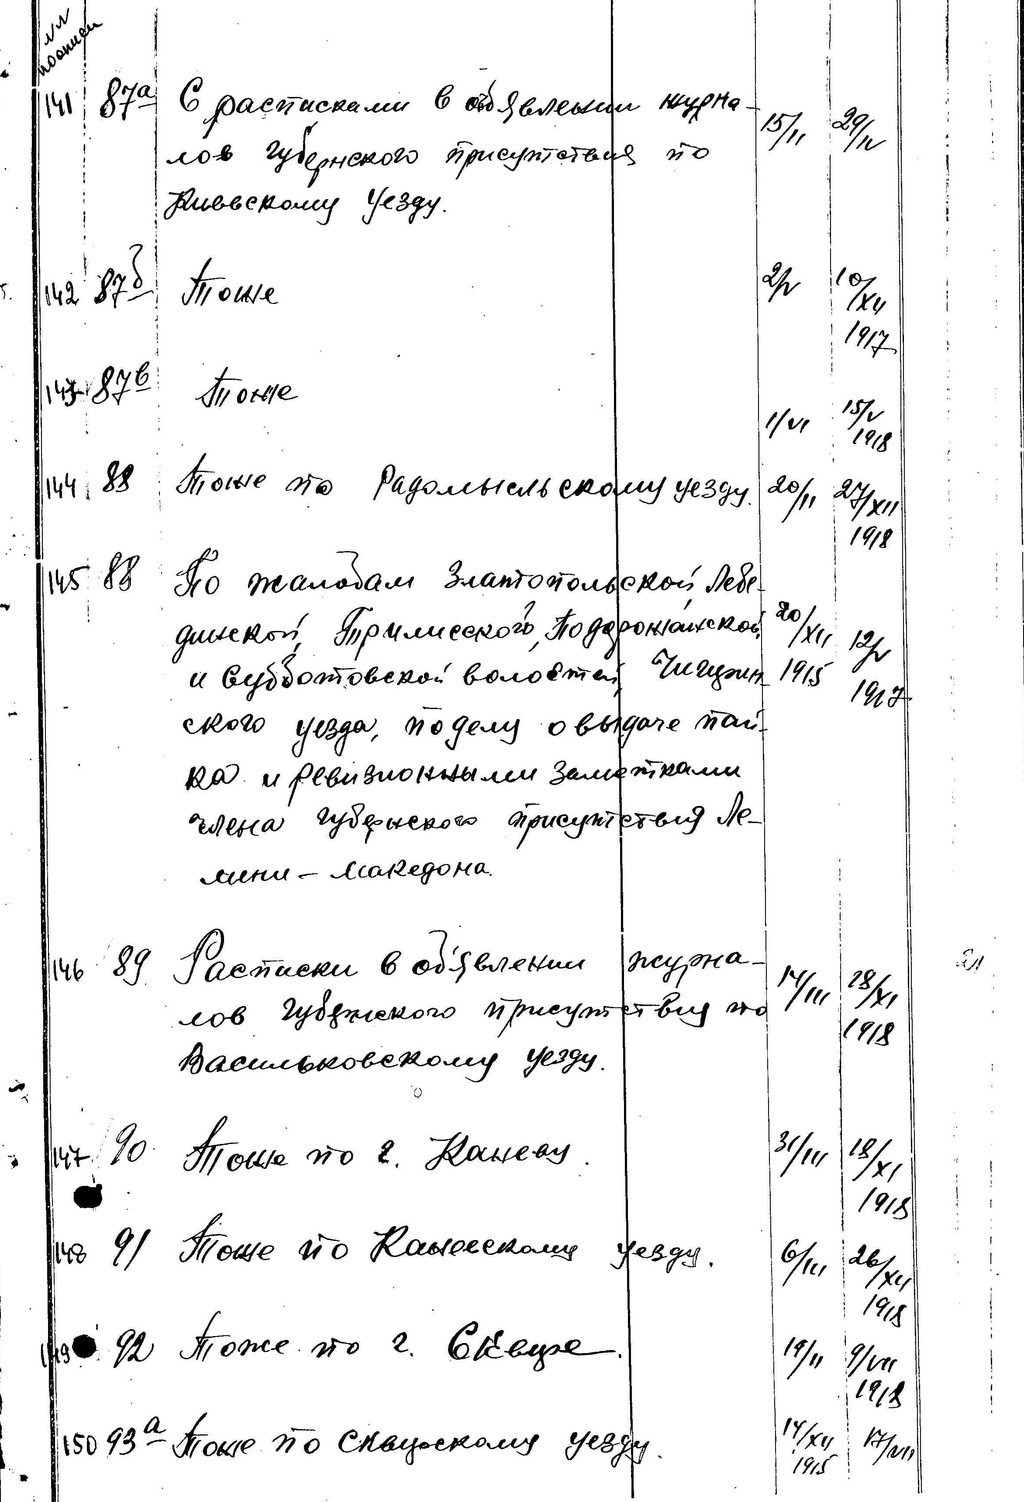 №№ поописи
141 87а С расписками в объявлении журна- 15/II 29/IV
лов губернского присутствия по
Киевскому уезду.
142 87б Тоже 2/V 10/XII
1917
143 87в Тоже 1/VI 15/V
1918
144 88 Тоже по Радомысльскому уезду. 20/II 27/XII
1918
145 88 По жалобам Златопольской, Лебе-
динской, Трилисского, Подорожанской 20/XII 12/V
и Субботовской волостей, Чигирин 1915 1917
ского уезда, по делу о выдаче пай-
ка и ревизионными заметками
члена губернского присутствия Ле-
мени-Македона.
146 89 Расписки в объявлении журна- 14/III 28/XI
лов губернского присутствия по 1918
Васильковскому уезду.
147 90 Тоже по г. Каневу. 31/III 18/XI
1918
148 91 Тоже по Каневскому уезду. 6/III 26/XII
1918
149 92 Тоже по г. Сквире. 19/II 9/VII
1918
150 93а Тоже по Сквирскому уезду. 14/XII 17/VII
1915